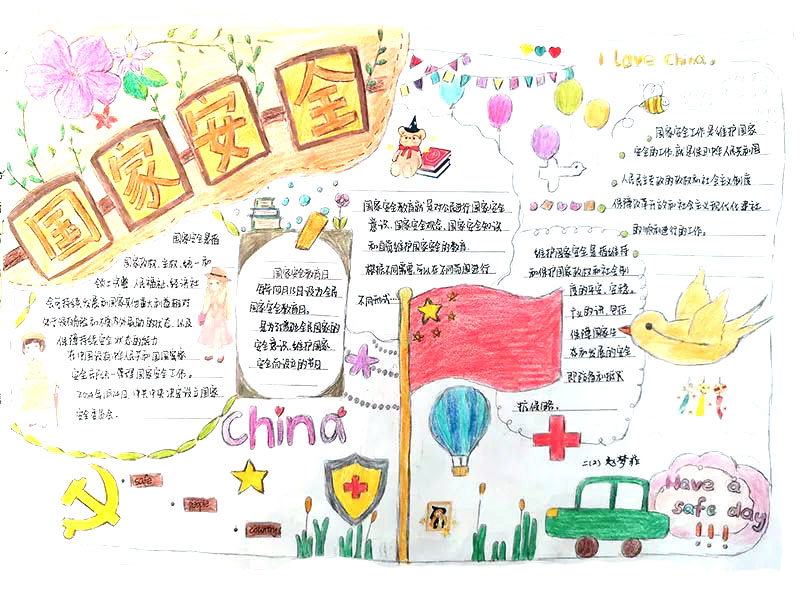 国家安全
I Love China.
国家安全是指
国家政权、主权、统一和
领土完整、人民福祉、经济社
会可持续发展和国家其他重大利益相对
处于没有危险和不受内外威胁的状态,以及
保障持续安全状态的能力
安全部统一管理国家安全工作。
安全委员会。
国家安全教育日
每年4月15日设为全民
国家安全教育日。
是为了增强全民国家的
安全意识,维护国家
安全而设立的节日
国家安全教育就是对公民进行国家安全
意识、国家安全观念、国家安全知识
和自觉维护国家安全的教育
根据不同需要,可以在不同范围进行
不同形式…
国家安全工作是维护国家
安全的工作,就是保卫中华人民共和国
人民民主专政的政权和社会主义制度
保障改革开放和社会主义现代化建设
的顺利进行的工作。
维护国家安全是指维持
和维护国家政权和社会制
度的平安、安稳。
保障国家生
存和发展的安全
即防备和抵灭
抗侵略。
二(2)
China
safe
people
country
Have a
safe day
!!!